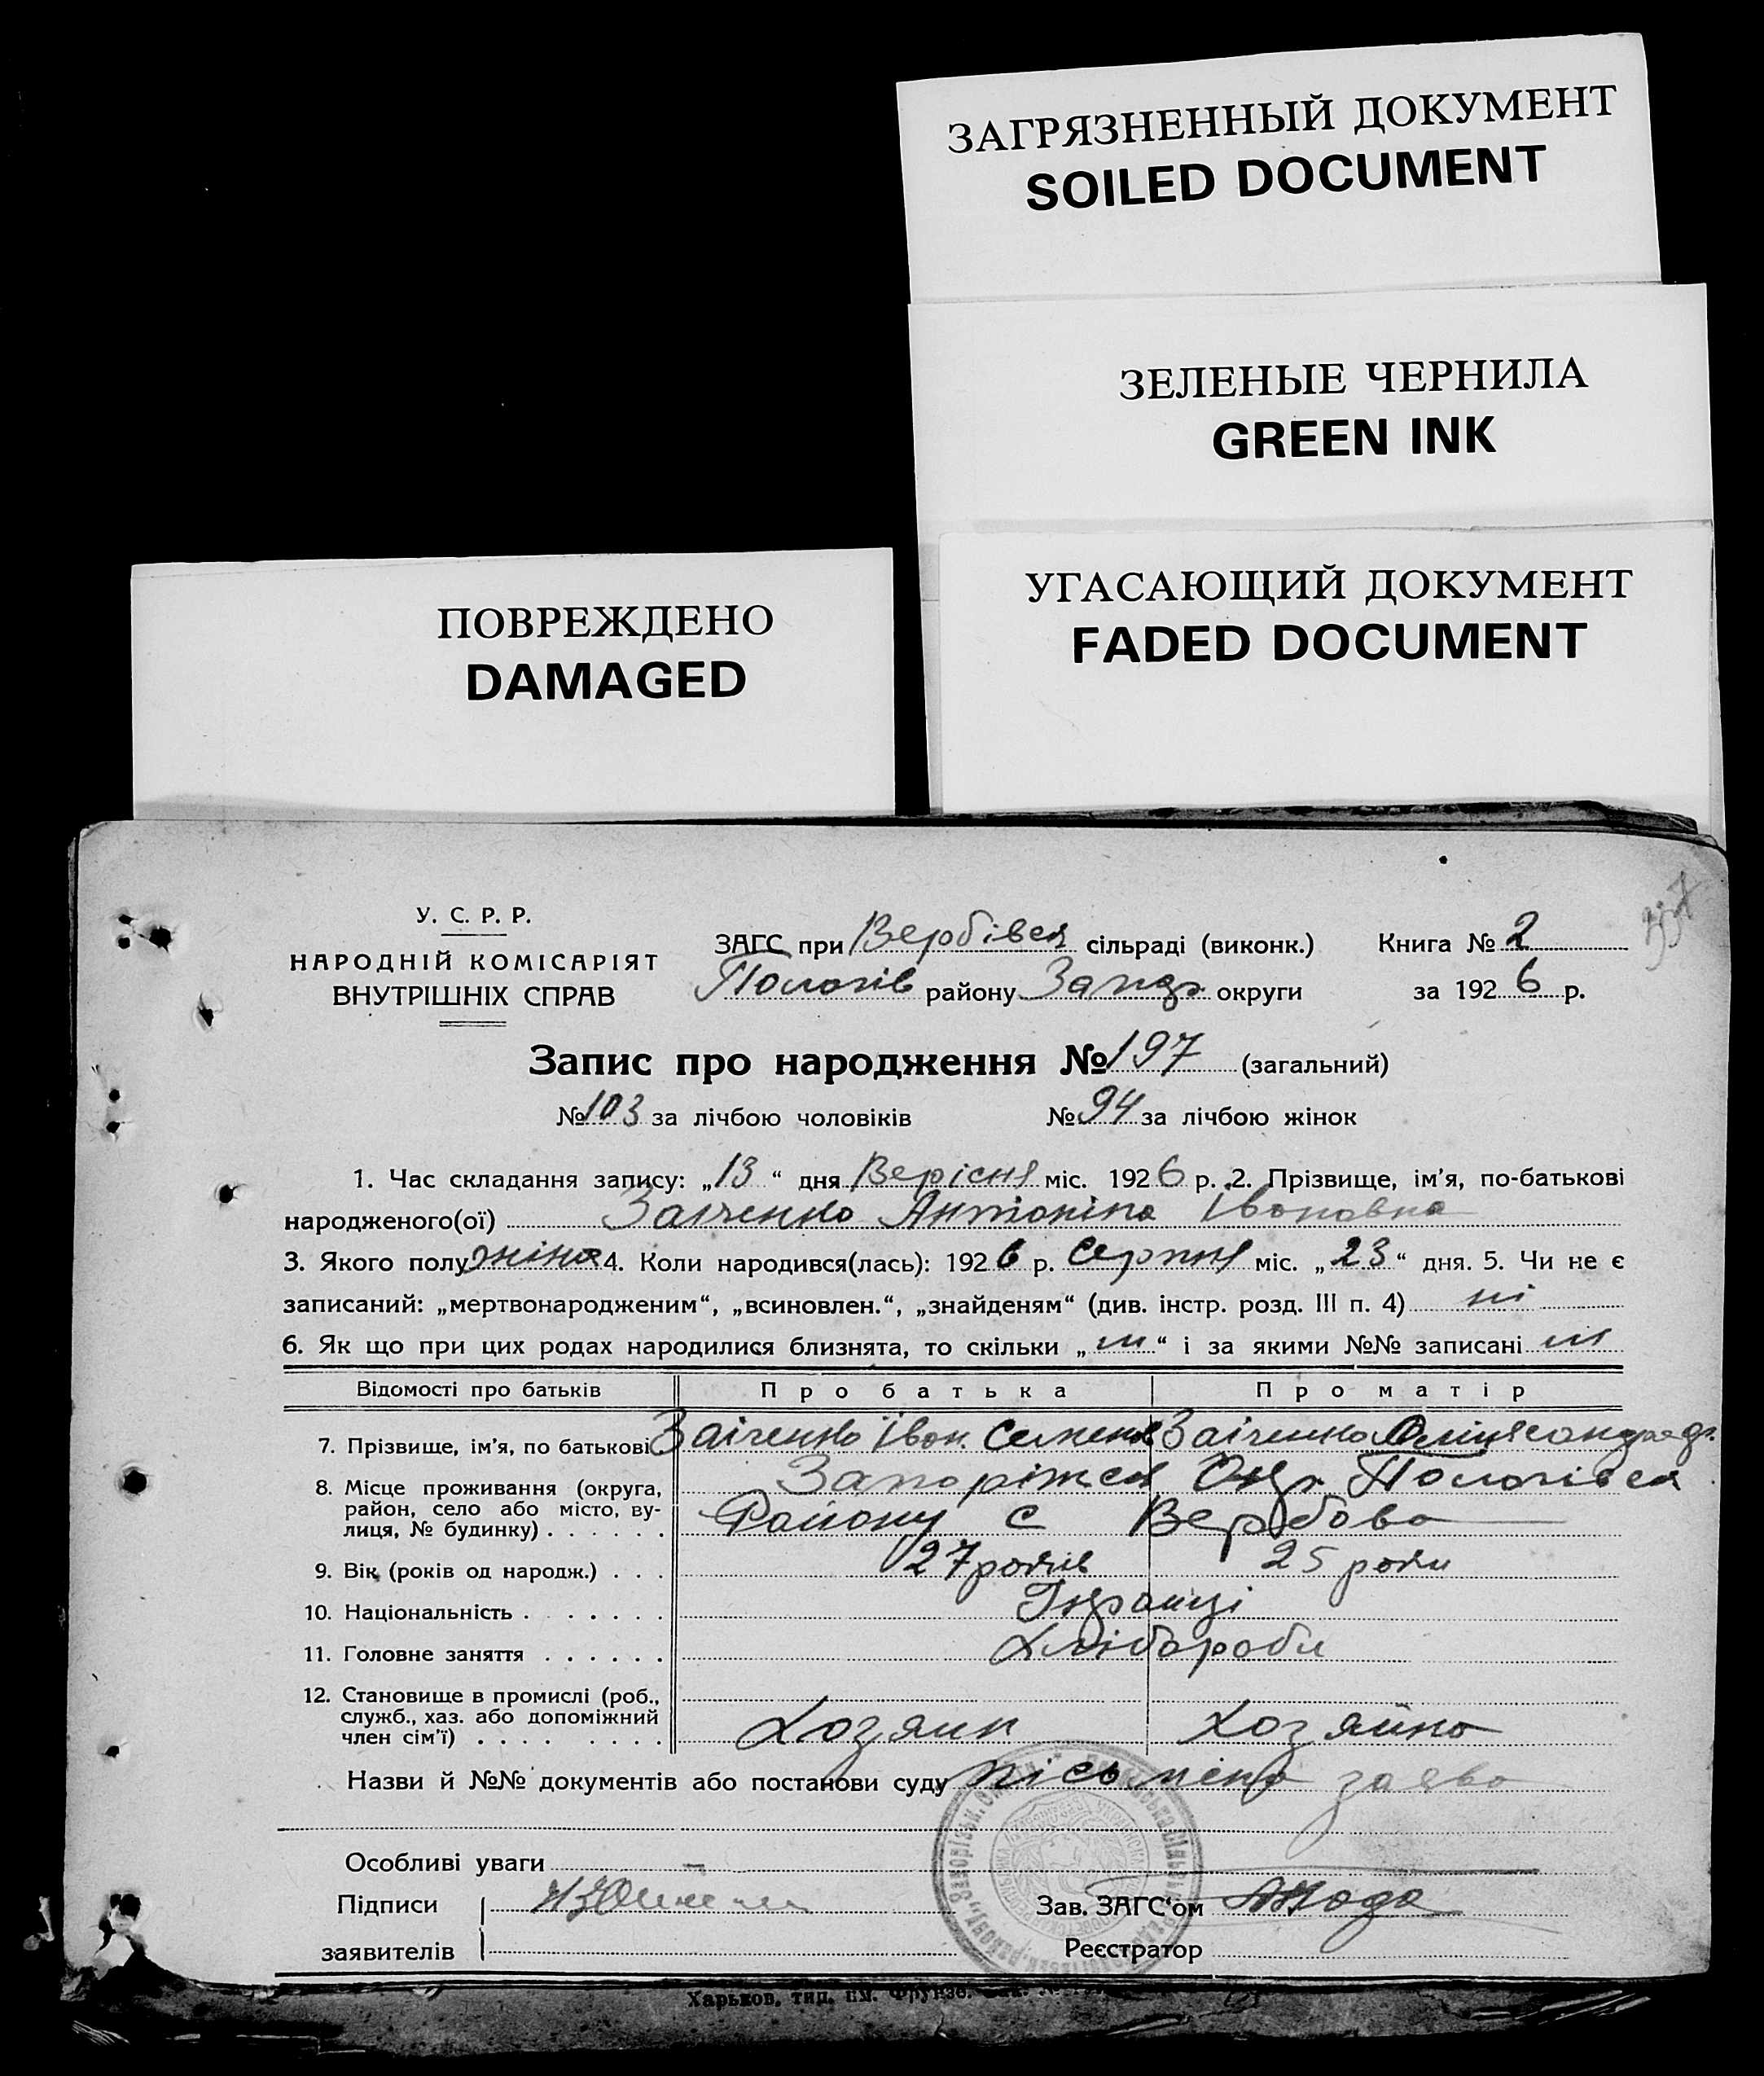 ЗАГРЯЗНЕННЫЙ ДОКУМЕНТ
SOILED DOCUMENT
ЗЕЛЕНЫЕ ЧЕРНИЛА
GREEN INK
УГАСАЮЩИЙ ДОКУМЕНТ
FADED DOCUMENT
ПОВРЕЖДЕНО
DAMAGED
У. С. Р. Р.
НАРОДНІЙ КОМІСАРІЯТ
ВНУТРІШНІХ СПРАВ
ЗАГС при Вербівск сільраді (виконк.) Книга № 2
Пологів району Запор округи за 1926 р.
Запис про народження № 197 (загальний)
№ 103 за лічбою чоловіків № 94 за лічбою жінок
1. Час складання запису: „13“ дня Верісня міс. 1926 р. 2. Прізвище, ім’я, по-батькові
народженого(ої) Заіченко Антоніна Івановна
3. Якого полу жіноч 4. Коли народився(лась): 1926 р. Серпня міс. „23“ дня. 5. Чи не є
записаний: „мертвонародженим“, „всиновлен.“, „знайденям“ (див. інстр. розд. III п. 4) ні
6. Як що при цих родах народилися близнята, то скільки „ “ і за якими №№ записані
Відомості про батьків Про батька Про матір
7. Прізвище, ім’я, по батькові Заіченко Іван. Семенов Заіченко
8. Місце проживання (округа, район, село або місто, вулиця, № будинку) Запоріжск Окр. Пологівск
Району с Вербова
9. Вік (років од народж.) 27 років 25 роки
10. Національність Українці
11. Головне заняття Хлібороби
12. Становище в промислі (роб., служб., хаз. або допоміжний член сім’ї) Хозяин Хозяйка
Назви й №№ документів або постанови суду пісьмена заява
Особливі уваги –
Підписи
заявителів
Зав. ЗАГС‘ом
Реєстратор
Харьков, тип. им. Фрунзе.